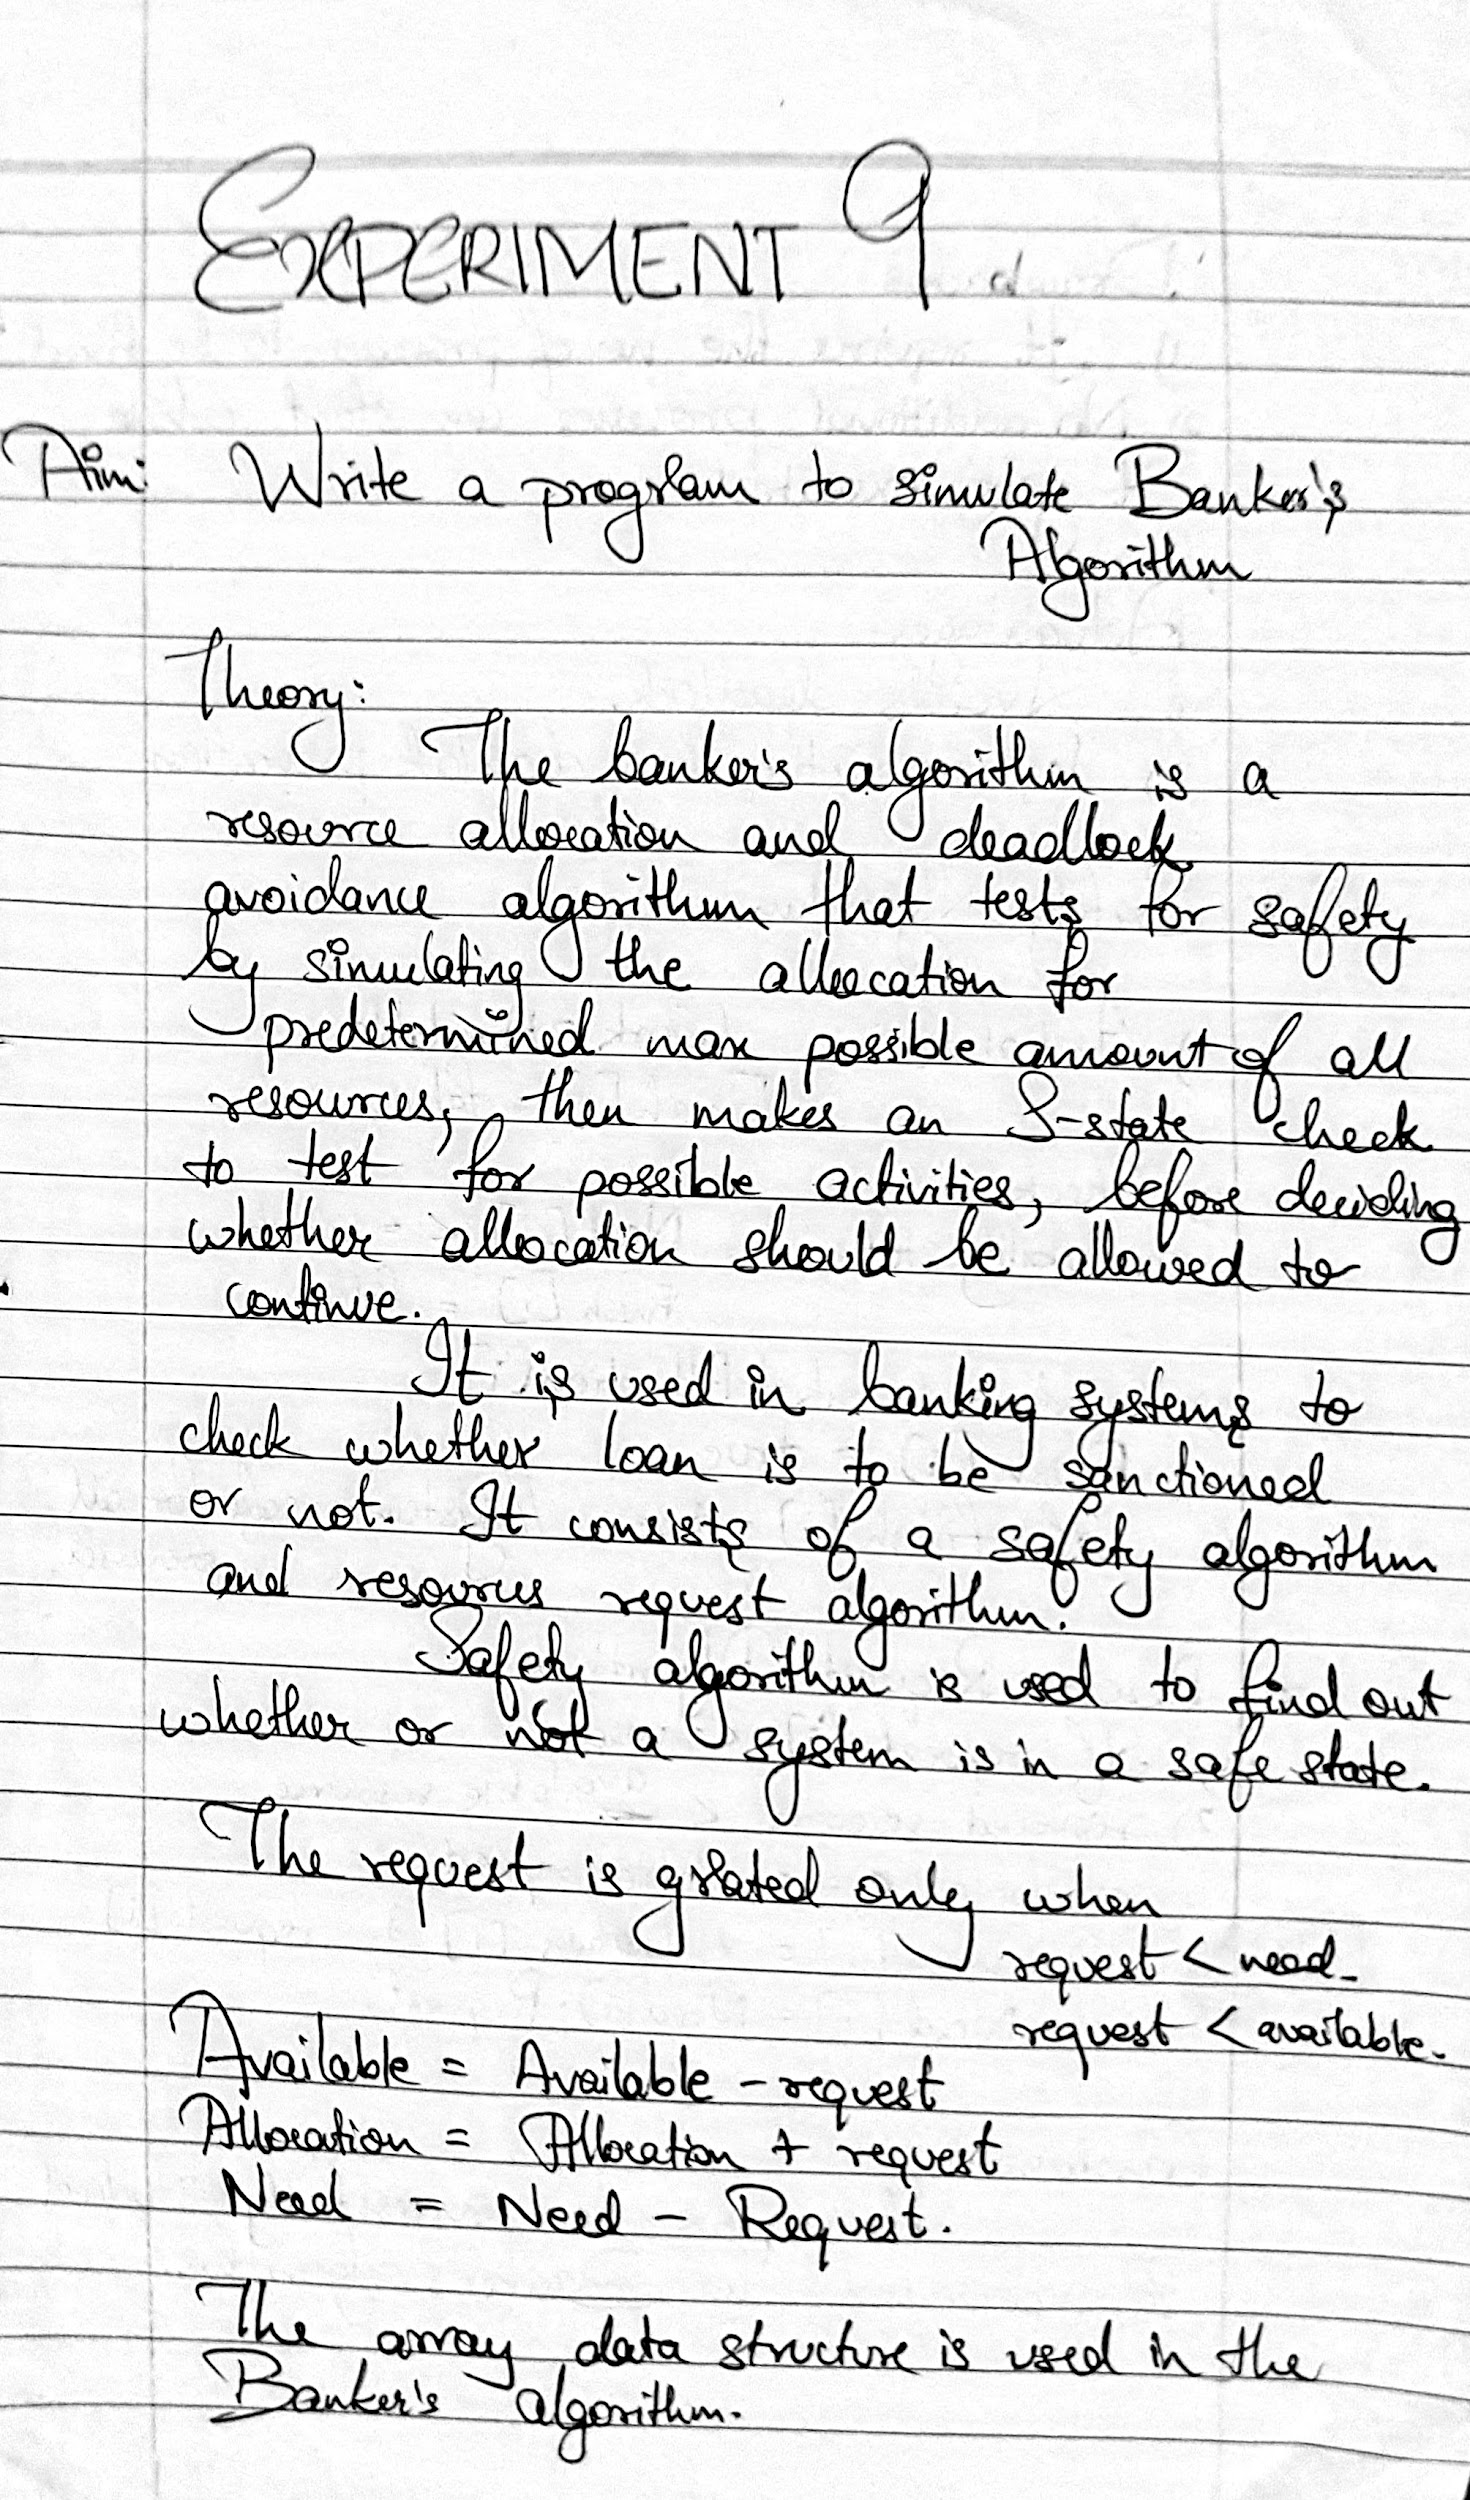 EXPERIMENT 9
Aim: Write a program to simulate Banker's
Algorithm
Theory:
The banker's algorithm is a
resource allocation and deadlock
avoidance algorithm that tests for safety
by simulating the allocation for
predetermined max possible amount of all
resources, then makes an S-state check
to test for possible activities, before deciding
whether allocation should be allowed to
continue.
It is used in banking systems to
check whether loan is to be sanctioned
or not. It consists of a safety algorithm
and resources request algorithm.
Safety algorithm is used to find out
whether or not a system is in a safe state.
The request is grated only when
request < need.
request < available.
Available = Available - request
Allocation = Allocation + request
Need = Need - Request.
The array data structure is used in the
Banker's algorithm.